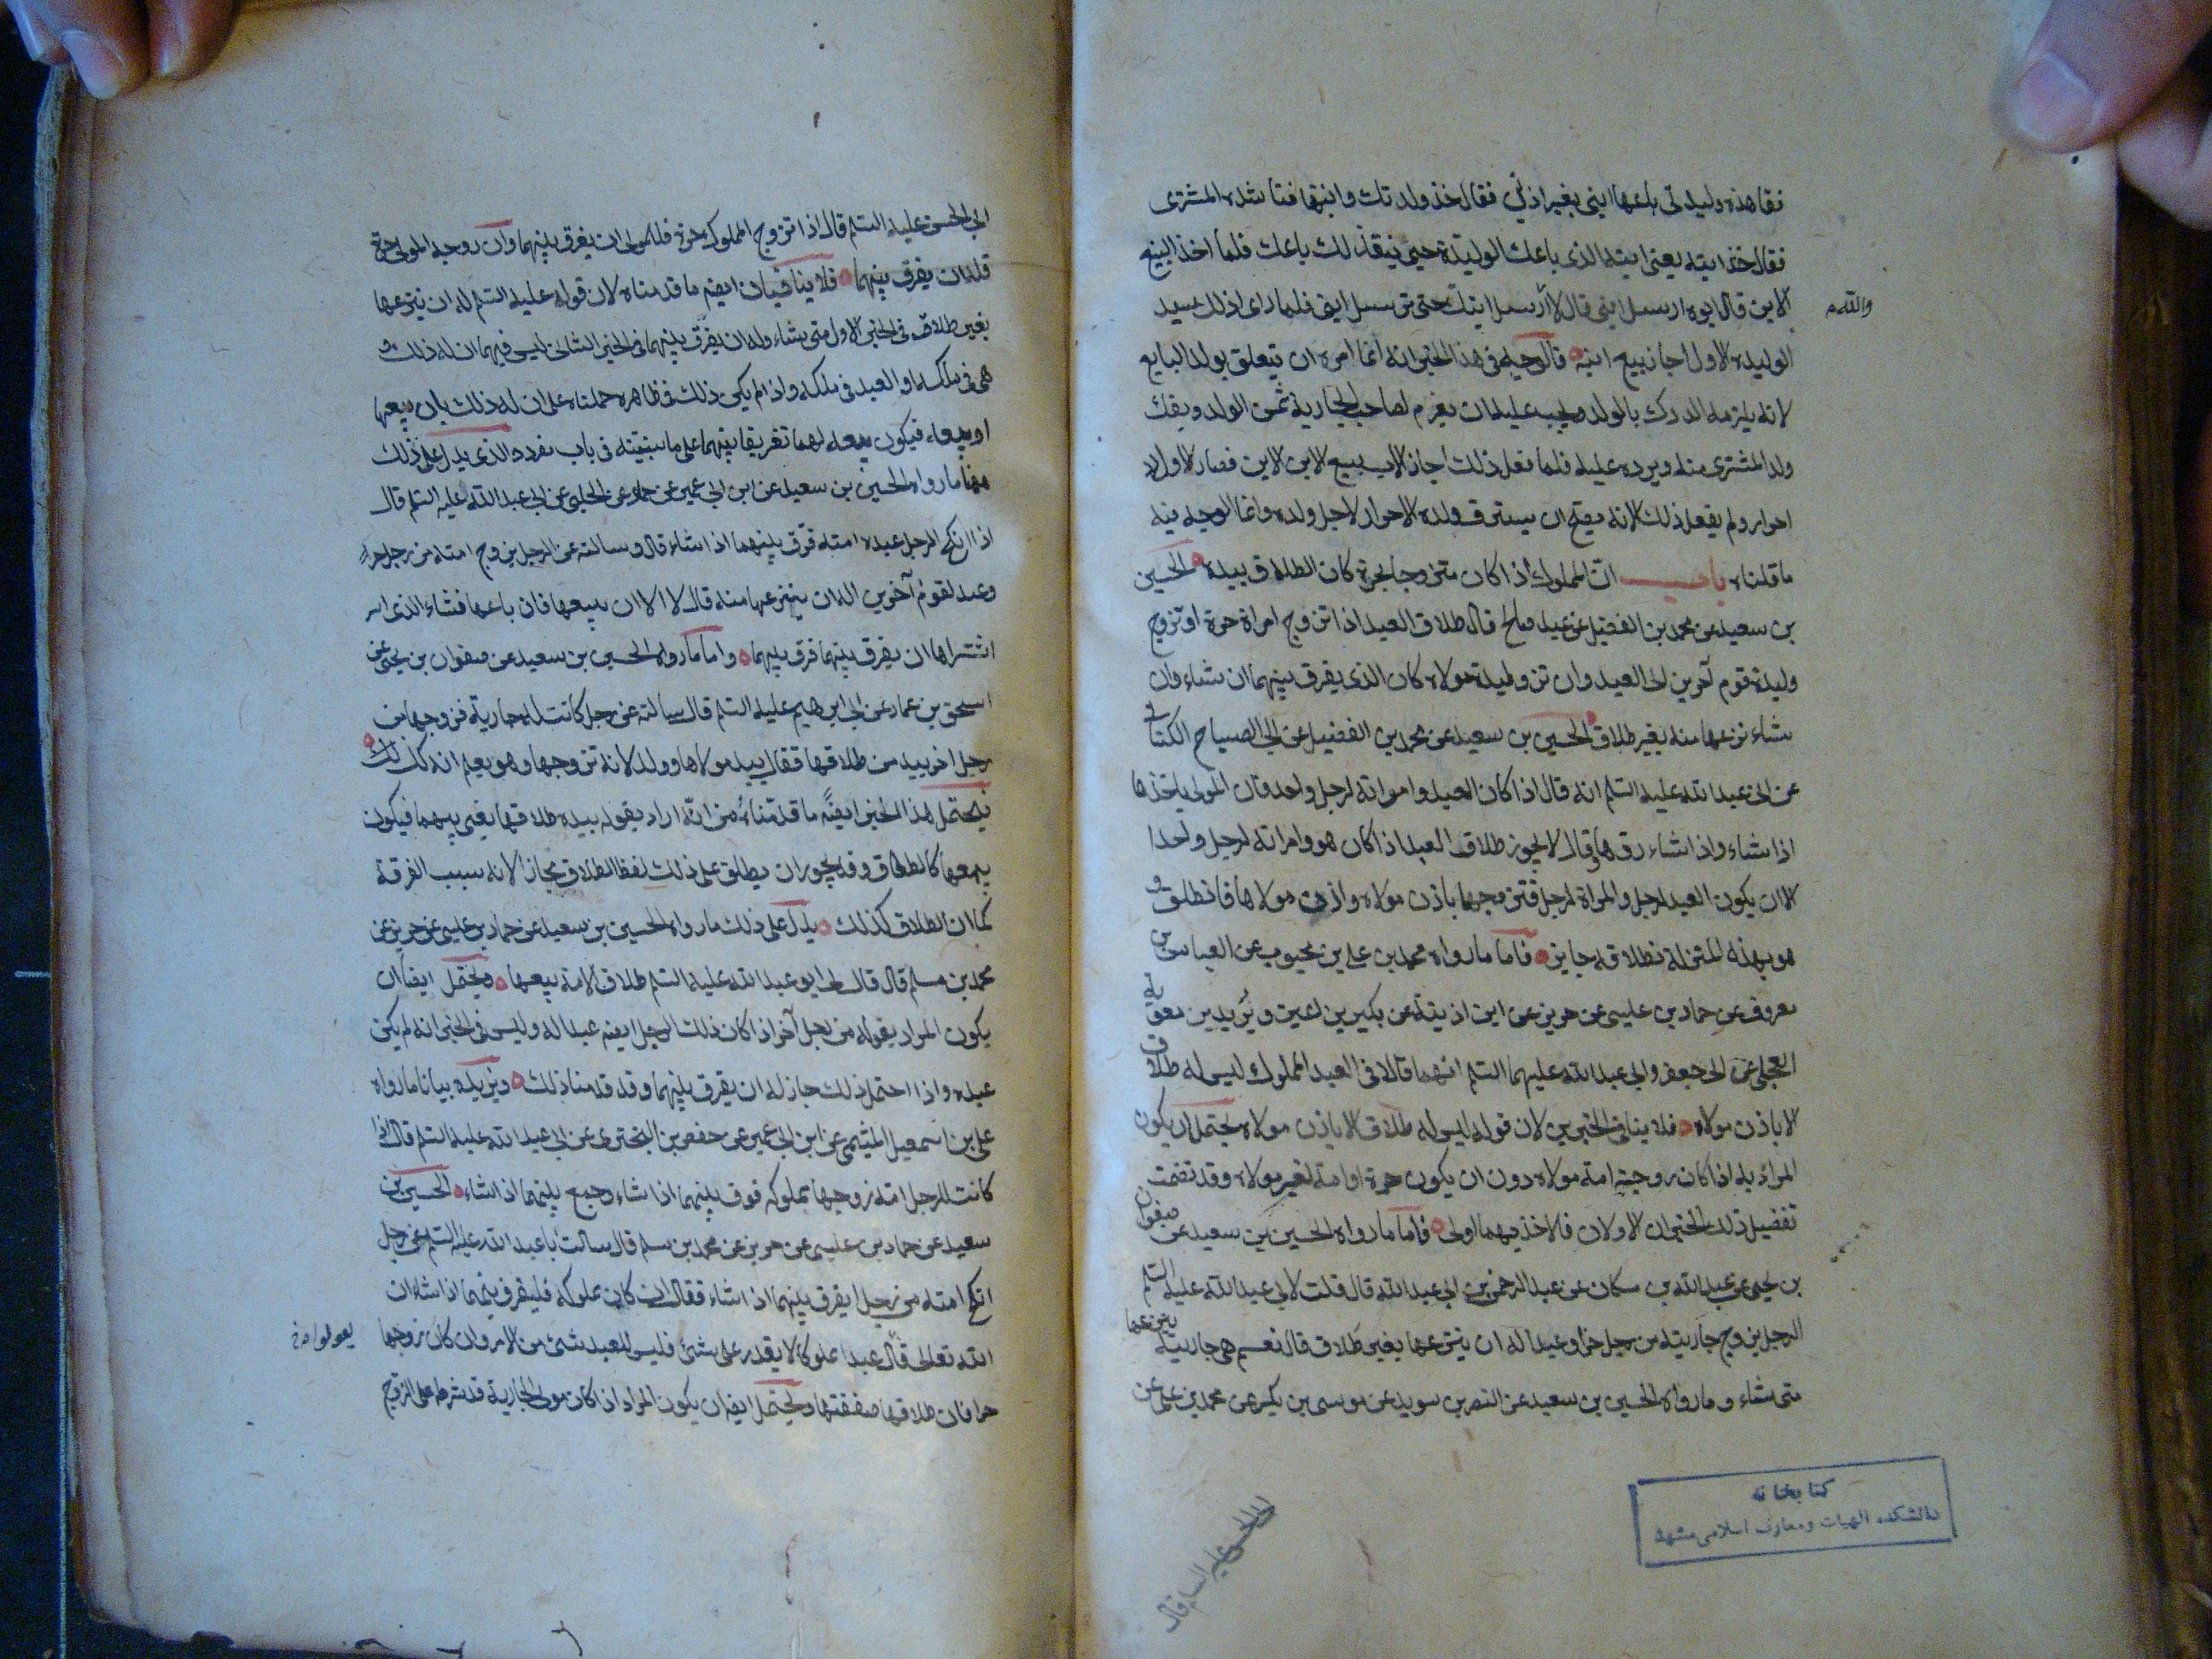 فقا هذه وليدتي باعها ابنى بغير اذنى فقال خذ ولدتك وابنها فناشده المشترى
فقال خذ ابنه يعنى ابنه الذى باعك الوليدة حتى ينقذ لك باعك فلما اخذ البيع
الابن قال ابوه ارسل ابنى قال لا ارسل ابنك حتى ترسل ابنى فلما راى ذلك سيد
والله م
الوليدة الاول اجاز بيع ابنه قال وجه فى هذا الخبر انه انما امره ان يتعلق بولد البايع
لانه يلزمه الدرك بالولد ويجب عليه ان يغرم لصاحب الجارية ثمن الولد ويفك
ولد المشترى منه ويرده عليه فلما فعل ذلك اجاز الاب بيع الابن الابن فصار الاولاد
احرار ولم يفعل ذلك لانه يصح ان يسترق ولده الاحرار لاجل ولده وانما الوجه فيه
ما قلناه باب انّ المملوك اذا كان متزوجا بحرة كان الطلاق بيده الحسين
بن سعيد عن محمد بن الفضيل عن عبد صالح قال طلاق العبد اذا تزوج امراة حرة او تزوج
وليدة قوم آخرين الى العبد وان تزوج وليدة مولاه كان الذى يفرق بينهما ان شاء وان
شاء نزعها منه بغير طلاق الحسين بن سعيد عن محمد بن الفضيل عن ابى الصباح الكنانى
عن ابى عبد الله عليه السلم انه قال اذا كان العبد وامراته لرجل واحد فان المولى ياخذها
اذا شاء واذا شاء ردها وقال لا يجوز طلاق العبد اذا كان هو وامراته لرجل واحد ا
لا ان يكون العبد لرجل والمراة لرجل فتزوجها باذن مولاه واذن مولاها فان طلق و
هو بهذه المنزلة فطلاقه جايز فاما ما رواه محمد بن على بن محبوب عن العباس بن
معروف عن حماد بن عليسى عن حريز عن ابن اذينة عن بكير بن اعين وبُريد بن معوية
العجلى عن ابى جعفر وابى عبد الله عليهما السلم انهما قالا فى العبد المملوك ليس له طلاق
الا باذن مولاه فلا ينافى الخبرين لان قوله ليس له طلاق الا باذن مولاه يحتمل ان يكون
المراد به اذا كان زوجته امة مولاه دون ان يكون حرة او امة لغير مولاه وقد تضمت
تفضيل ذلك الخبران الاولان فالاخذ بهما اولى فاما ما رواه الحسين بن سعيد عن صفوان
بن يحيى عن عبد الله بن مسكان عن عبد الرحمن بن ابى عبد الله قال قلت لابى عبد الله عليه السلم
الرجل يزوج جاريته من رجل حر او عبد اله ان ينتزعها بغير طلاق قال نعم هى جاريته ينزعها
متى شاء وما رواه الحسين بن سعيد عن النضر بن سويد عن موسى بن بكير عن محمد بن على عن
ابى الحسن عليه السلم قال
كتابخانه
دانشكده الهيات ومعارف اسلامى مشهد
ابى الحسن عليه السلم قال اذا تزوج المملوك حرة فللمولى ان يفرق بينهما وان زوجه المولى حرة
فله ان يفرق بينهما فلا ينافيان ايضم ما قدمناه لان قوله عليه السلم له ان ينزعها
بغير طلاق فى الخبر الاول متى شاء وله ان يفرق بينهما فى الخبر الثانى ليس فيهما ان له ذلك و
هى فى ملكه او العبد فى ملكه واذا لم يكن ذلك فى ظاهره حملناه على ان له ذلك بان يبيعها
او يبيعه فيكون بيعه لهما تفريقا بينهما على ما سنبينه فى باب مفرد والذى يدل على ذلك
ما رواه الحسين بن سعيد عن ابن ابى عمير عن حماد عن الحلبى عن ابى عبد الله عليه السلم قال
اذا انكح الرجل عبده امته فرق بينهما اذا شاء قال وسالته عن الرجل يزوج امته من رجل حر او
وعبد لقوم آخرين اله ان ينتزعها منه قال لا الا ان يبيعها فان باعها فشاء الذى ا
اشتراها ان يفرق بينهما فرّق بينهما واما ما رواه الحسين بن سعيد عن صفوان بن يحيى عن
اسحق بن عمار عن ابى ابرهيم عليه السلم قال سالته عن رجل كانت له جارية فزوجها من
رجل اخر بيد من طلاقها فقال بيد مولاها وولد لانه تزوجها وهو يعلم انه كذلك
فيحتمل هذا الخبر ايضًه ما قدّمناهُ من انّه اراد بقوله بيده طلاقها يعنى بيعها فيكون
بيعها كالطلاق وقد يجوز ان يطلق على ذلك لفظ الطلاق مجازا لانه سبب الفرقة
كما ان الطلاق كذلك يدل على ذلك ما رواه الحسين بن سعيد عن حماد بن عليسى عن حريز عن
محمد بن مسلم قال قال لى ابو عبد الله عليه السلم طلاق الامة بيعها ويحتمل ايضاً ان
يكون المراد بقوله من رجل آخر اذا كان ذلك الرجل ايضم عبدا له وليس فى الخبر انه لم يكن
عبده واذا احتمل ذلك جاز له ان يفرق بينهما وقد قدمنا ذلك ويزيده بيانا ما رواه
على بن اسمعيل الميثمى عن ابن ابى عمير عن حفص بن البخترى عن ابى عبد الله عليه السلم قال اذا
كانت للرجل امة زوجها مملوكه فرق بينهما اذا شاء وجمع بينهما اذا شاء الحسين بن
سعيد عن حماد بن عليسى عن حريز عن محمد بن مسلم قال سالت ابا عبد الله عليه السلم عن رجل
انكح امته من رجل ايفرق بينهما اذا شاء فقال ان كان مملوكه فليفرق بينهما اذا شاء ان
الله تعالى قال عبدا مملوكا لا يقدر على شئ فليس للعبد شئ من الامر وان كان زوجها
حرا فان طلاقها صفقتها ويحتمل ايضا ان يكون المراد اذا كان مولى الجارية قد شرط على الزوج